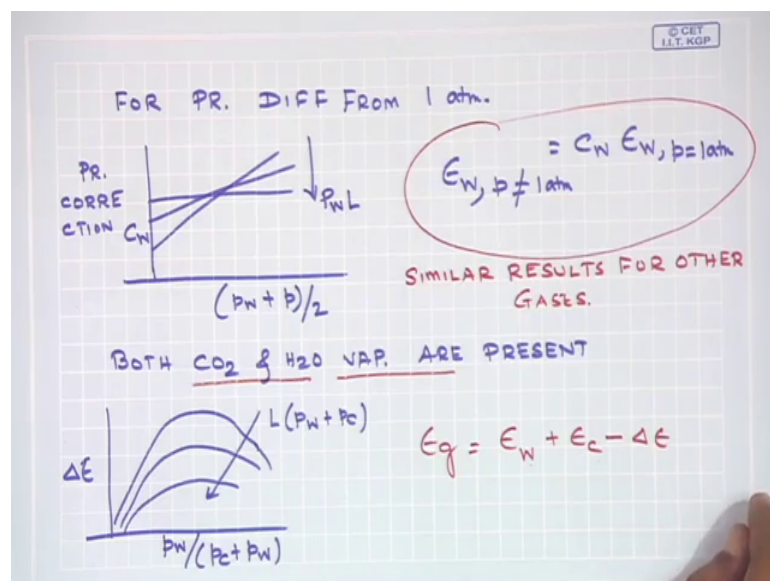 © CET
I.I.T. KGP
FOR PR. DIFF FROM 1 atm.
PR.
CORRE
CTION Cw
PwL
(pw + p)/2
ϵw, p≠1atm = Cw ϵw, p=1atm
SIMILAR RESULTS FOR OTHER
GASES.
BOTH CO2 & H2O VAP. ARE PRESENT
L(pw + pc)
Δϵ
pw/(pc+pw)
ϵg = ϵw + ϵc - Δϵ